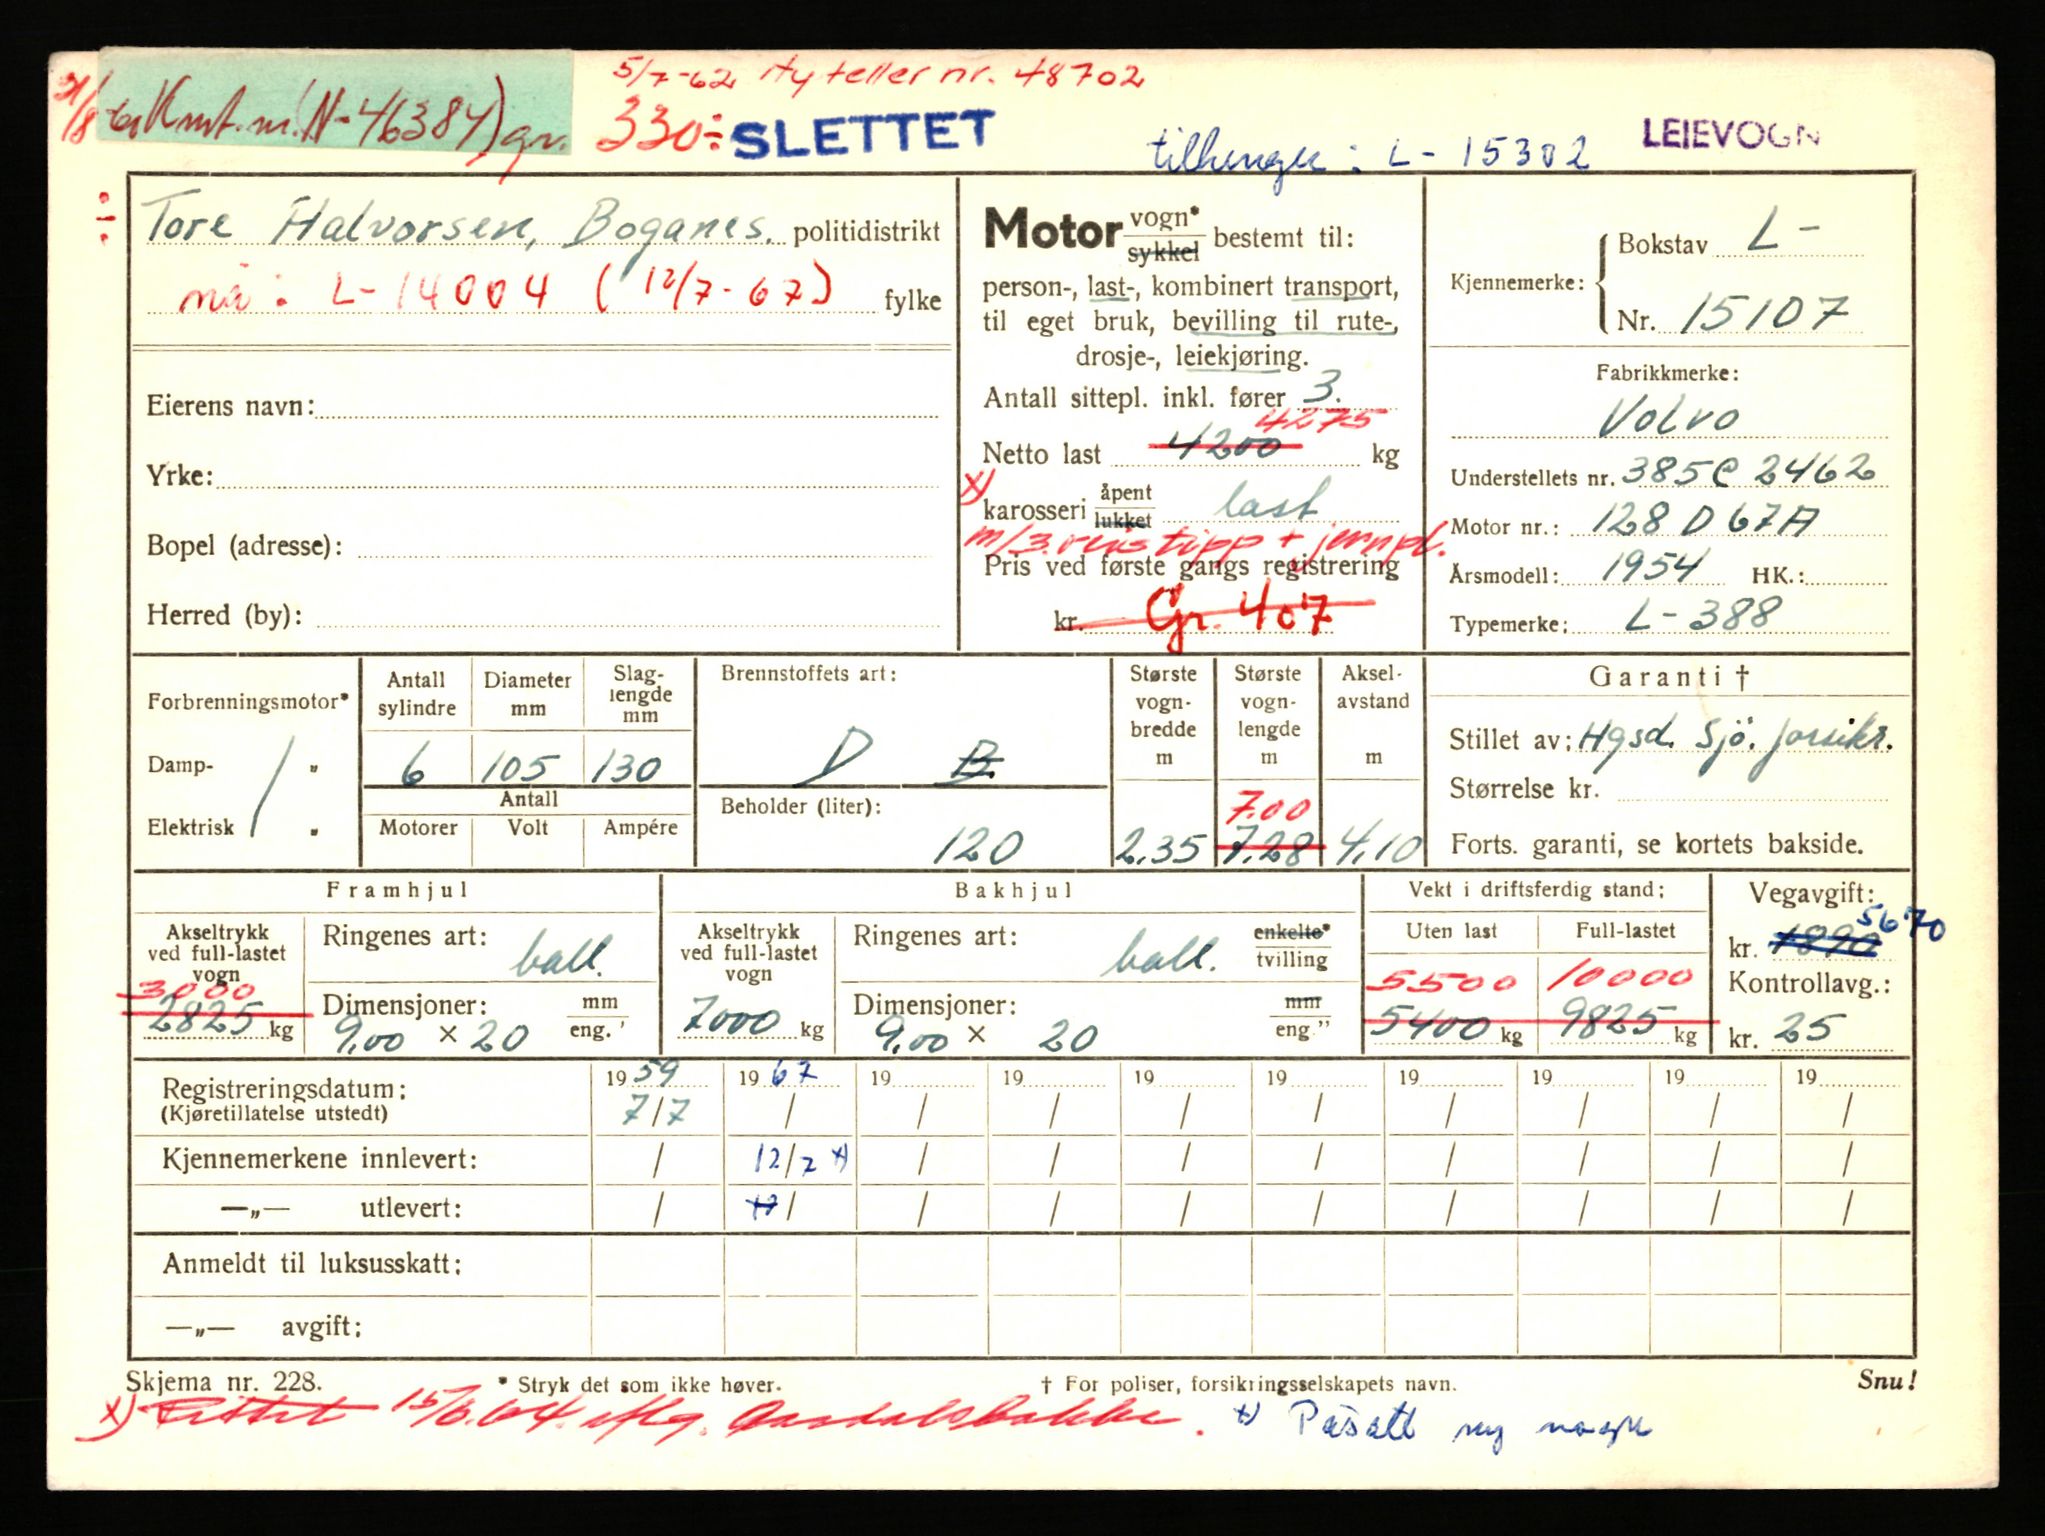 5/7-62 Ny teller nr. 48702
21/8 61 Kmt. nr. (N-46384) gr.
330÷ SLETTET
tilhenger: L-15302
LEIEVOGN
÷
Tore Halvorsen, Boganes. politidistrikt
nå: L-14004 (12/7-67) fylke
Eierens navn:
Yrke:
Bopel (adresse):
Herred (by):
Motor vogn* sykkel bestemt til:
person-, last-, kombinert transport,
til eget bruk, bevilling til rute-,
drosje-, leiekjøring.
Antall sittepl. inkl. fører 3.
4275
Netto last 4200 kg
x) karosseri åpent lukket last
m/3.veis tipp + jernpl.
Pris ved første gangs registrering
kr. Gr. 407
Kjennemerke: Bokstav L-
Nr. 15107
Fabrikkmerke:
Volvo
Understellets nr. 385C 2462
Motor nr.: 128 D 67A
Årsmodell: 1954 HK.:
Typemerke: L-388
Forbrenningsmotor*
Damp- „
Elektrisk „
Antall sylindre
6
Diameter mm
105
Slag-lengde mm
130
Antall
Motorer Volt Ampére
Brennstoffets art:
D B.
Beholder (liter):
120
Største vogn-bredde m
2.35
Største vogn-lengde m
7.00
7.28
Aksel-avstand m
4.10
Garanti †
Stillet av: Hgsd. Sjö. forsikr.
Størrelse kr.
Forts. garanti, se kortets bakside.
Framhjul
Akseltrykk ved full-lastet vogn
3000
2825 kg
Ringenes art: ball.
Dimensjoner: mm eng.'
9.00 × 20
Bakhjul
Akseltrykk ved full-lastet vogn
7000 kg
Ringenes art: ball. enkelte* tvilling
Dimensjoner: mm eng."
9.00 × 20
Vekt i driftsferdig stand:
Uten last Full-lastet
5500 10000
5400 kg 9825 kg
Vegavgift:
5670
kr. 1890
Kontrollavg.:
kr. 25
Registreringsdatum: 1959 1967 19 19 19 19 19 19 19 19
(Kjøretillatelse utstedt) 7/7 / / / / / / / / /
Kjennemerkene innlevert: / 12/7 x) / / / / / / / /
—„— utlevert: / 12/ / / / / / / / /
Anmeldt til luksusskatt:
—„— avgift:
Skjema nr. 228. * Stryk det som ikke høver. † For poliser, forsikringsselskapets navn. Snu!
x) 15/6.64. iflg. x) Påsatt ny vogn